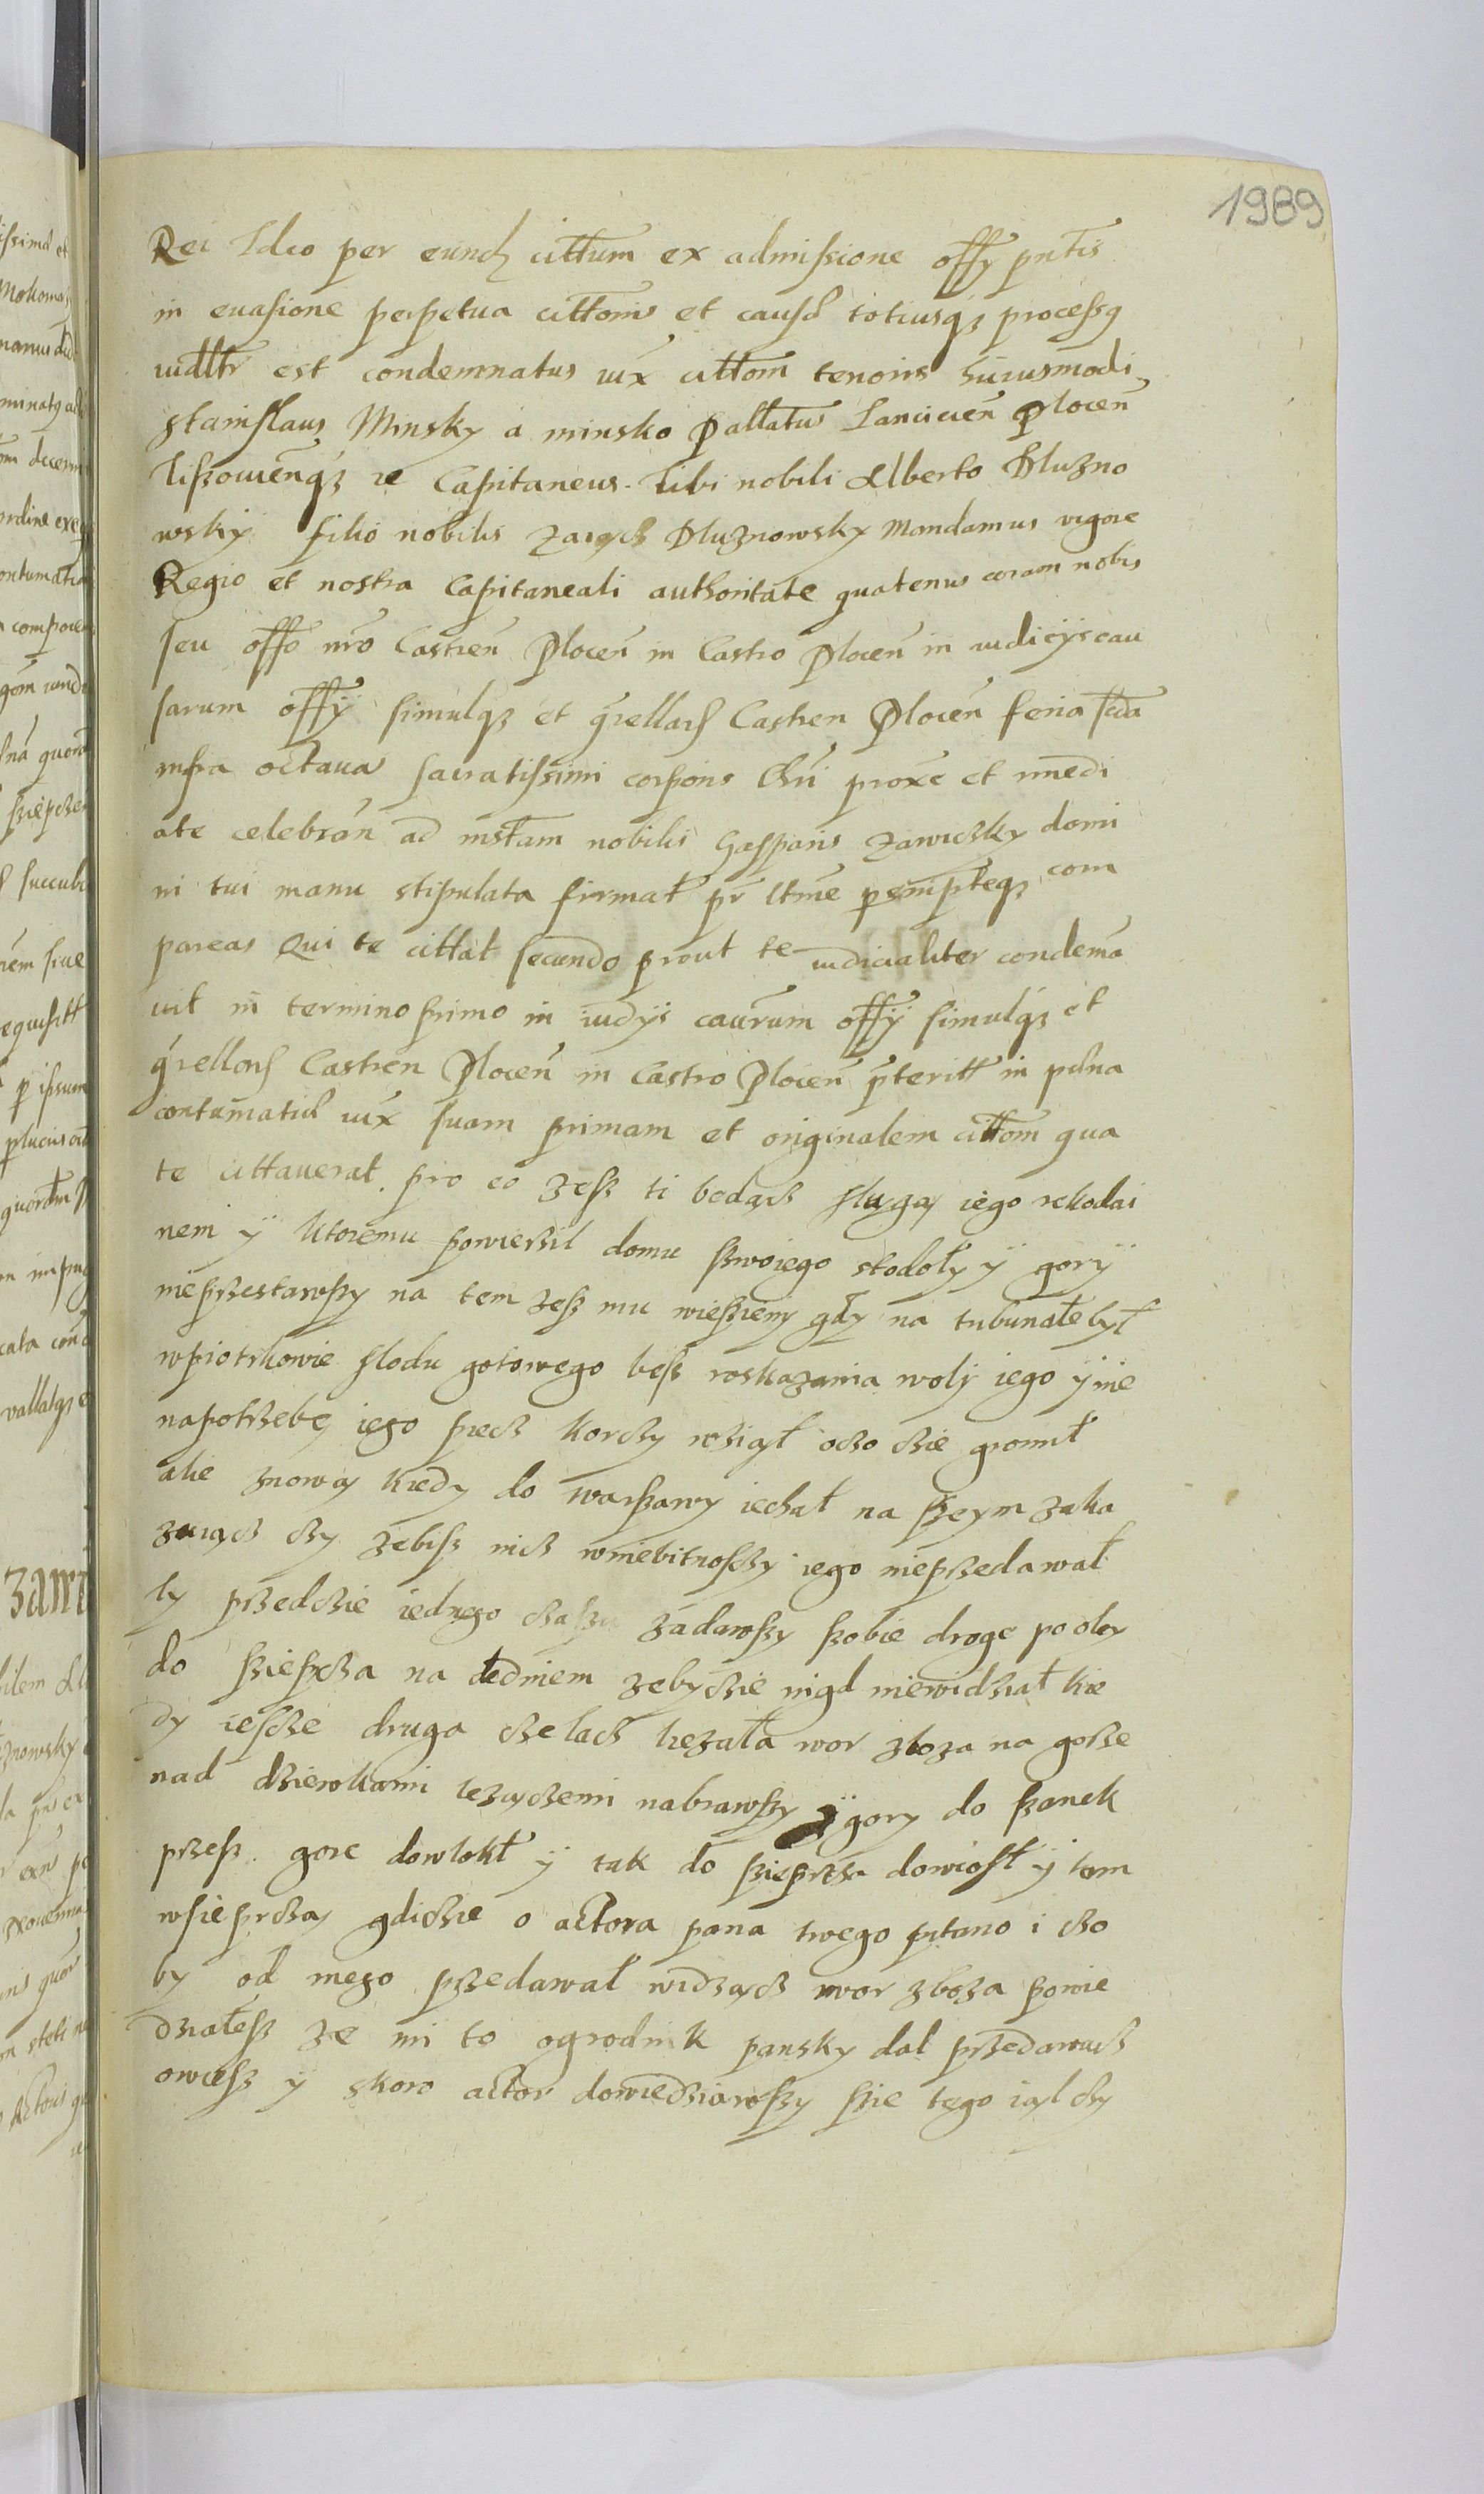 1989
Rei Ideo per eund cittum ex admissione offy pntis
in evasione perpetua cittonis et causæ totiusqз process9
iudltr est condemnatus iux cittom tenoris huiusmodi
Stanislaus Minsky a minsko Pallatus Lancicien Plocen
Liszovienqз Capitaneus. Tibi nobili Alberto Dluzno
wsky filio nobilis Dluznowsky Mandamus vigore
Regio et nostra Capitaneali authoritate quatenus coram nobis
seu offo nro Castren Plocen in Castro Plocen in iudicijs cau
sarum offy simulqз et qrellarh Castren Plocen feria scda
infra octavas sacratissimi corporis Chri proxe et imedi
ate celebran ad instam nobilis Gasparis Zawiczky domi
ni tui manu stipulata firmat pr ltme peremptieqз com
pareas Qui te cittat secundo prout te iudicialiter condemna
vit in termino primo in iudijs causrum offij simulqз et
qrellarh Castren Plocen in Castro Plocen pteritt in pdna
contumatia iux suam primam et originalem cittom qua
te cittaverat. pro eo zesz ti bedącz slugą iego rekodai
nem ÿ ktoremu powierzil domu szwoiego stodoły ÿ gorÿ
nieprzestawszy na tem zesz mu wieszieny gdy na tribunałe był
wpiotrkowie slodu gotowego besz roskazania woly iego ÿ nie
napotrzebę iego piecz korczy wziął oczo czie gromił
alie znową kiedy do warszawy iechał na szeym zaka
zuiącz czy zebisz nicz wniebitnosczy iego nieprzedawał
ty przedczie iednego czaszu zadawszy szobie droge podley
do szieprcza na dedniem zebyczie nigd niewidział kie
dy iescze druga czelacz liezała wor zboza na gorze
nad dziewkami lezączemi nabrawszy ÿ gory do szanek
przesz gore dowlokł ÿ tak do szieprcza dowiosł ÿ tam
wsieprczą gdiczie o actora pana twego pytano i czo
by od niego przedawał widzącz wor zboza powie
działesz ze mi to ogrodnik pansky dal przedawacz
owiesz ÿ skoro actor dowiedziawszy szie tego iął czy